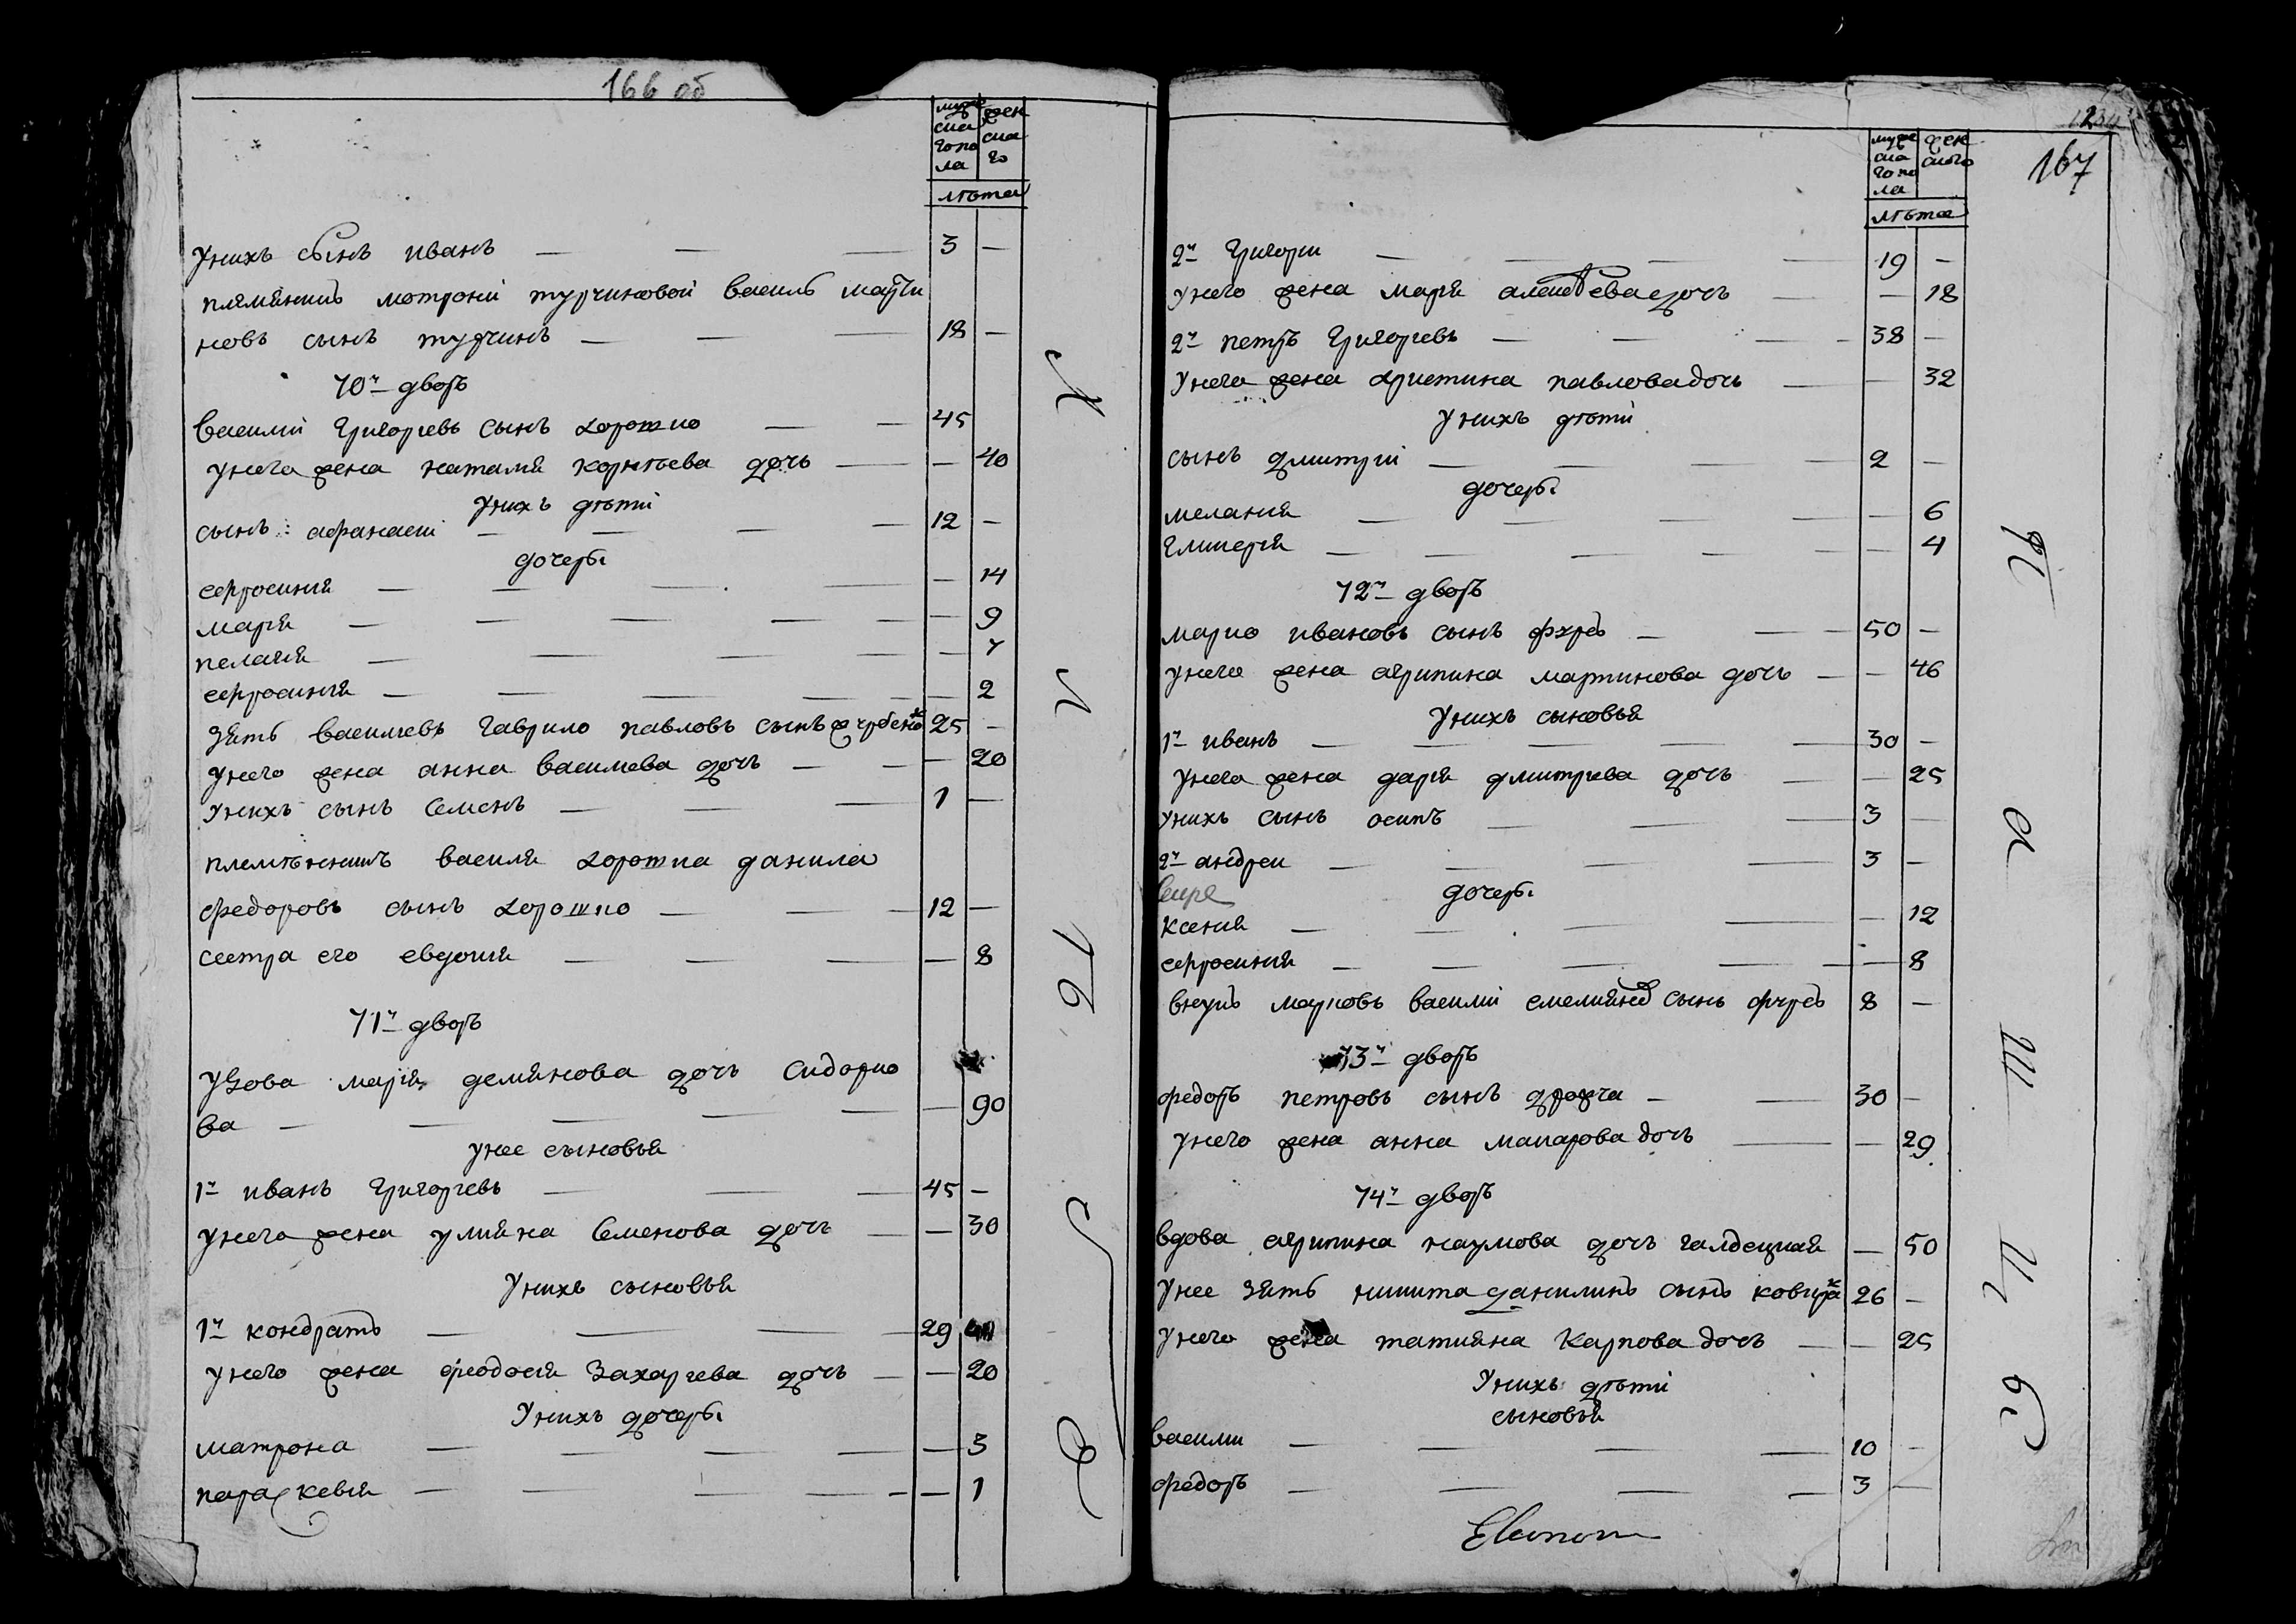 166 об
мужескаго пола
женскаго
лѣта
У нихъ сынъ иванъ — — — 3 —
племянникъ мотроны турчиновой василь марти
новъ сынъ турчинъ — — — 18 —
70й дворъ
василий григориевъ сынъ хорошко — — 45
у него жена наталия корнѣева дочь — — 40
У нихъ дѣти
сынъ афанасий — — — — 12 —
дочери
ефросиния — — — — — 14
мария — — — — — — 9
пелагия — — — — — 7
ефросиния — — — — — 2
зять василиевъ гаврило павловъ сынъ 25 —
у него жена анна василиева дочь — — — 20
У нихъ сынъ семенъ — — — 1 —
племѣнникъ василя хорошка данила
федоровъ сынъ хорошко — — — 12 —
сестра его евдокия — — — — 8
71й дворъ
Удова мария демянова дочь сидорко
ва — — — — — — 90
у нее сыновья
1й иванъ григориевъ — — — 45 —
у него жена улияна семенова дочь — — 30
У нихъ сыновья
1й кондратъ — — — 29
у него жена феодосия захариева дочь — — 20
У нихъ дочери
матрона — — — — — 3
параскевия — — — — — 1
167
мужескаго пола
женскаго
лѣта
2й григори — — — — 19 —
у него жена мария алексѣева дочь — — 18
2й петръ григориевъ — — — 38 —
У него жена христина павлова дочь — — 32
У нихъ дѣти
сынъ дмитрий — — — — 2 —
дочери
мелания — — — — — 6
гликерия — — — — — — 4
72й дворъ
марко ивановъ сынъ — — 50 —
у него жена агрипина мартинова дочь — — 46
У нихъ сыновья
1й иванъ — — — — — 30 —
У него жена дария дмитриева дочь — — 25
У нихъ сынъ осипъ — — — 3 —
2й андреи — — — — 3 —
дочери
ксения — — — — — 12
ефросиния — — — — — 8
внукъ марковъ василий емелияновъ сынъ 8 —
73й дворъ
федоръ петровъ сынъ — — 30 —
у него жена анна макарова дочь — — 29
74й дворъ
вдова агрипина наумова дочь — 50
У нее зять никита данилинъ сынъ 26 —
У него жена татияна карпова дочь — — 25
У нихъ дѣти
сыновья
василии — — — — 10 —
федоръ — — — — 3 —